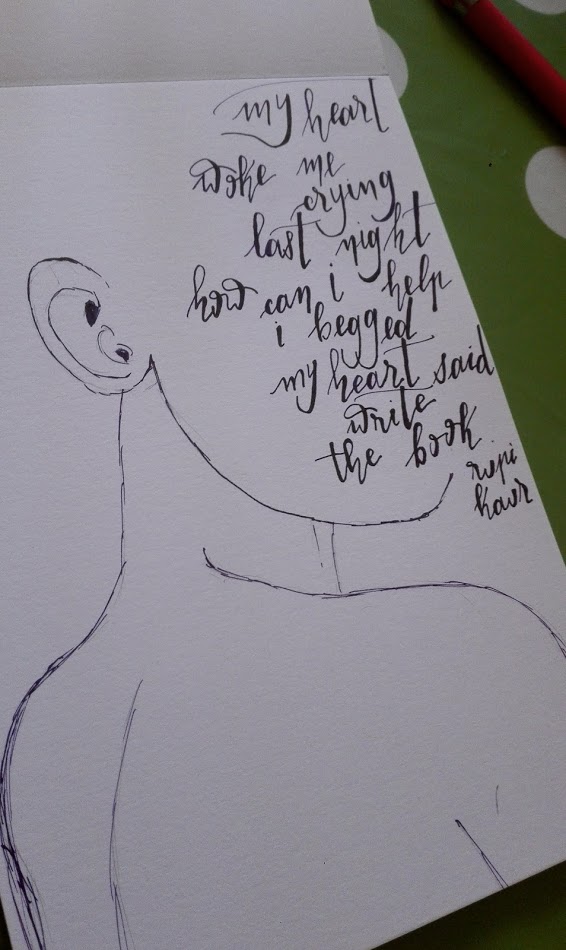 my heart
woke me
crying
last night
how can i help
i begged
my heart said
write
the book
rupi
kaur